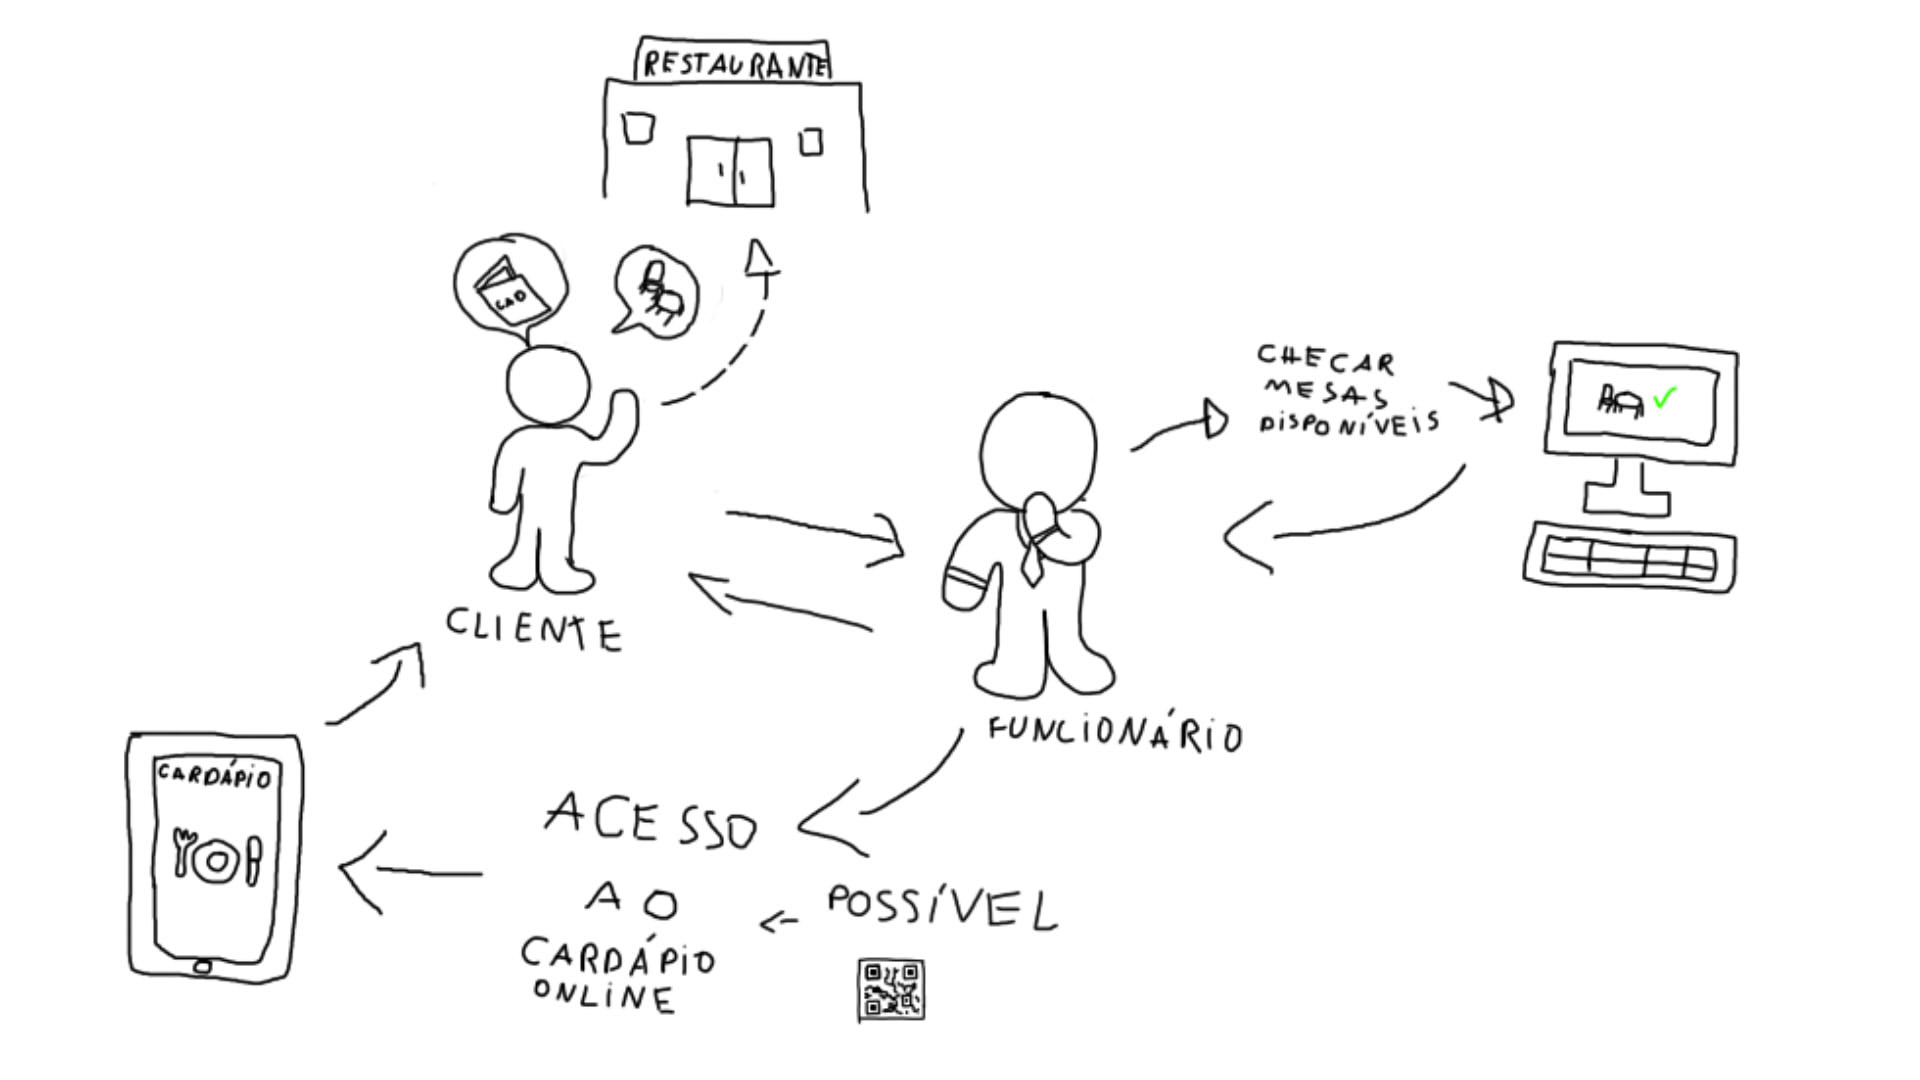 RESTAURANTE
CAD
CHECAR
MESAS
DISPONÍVEIS
CLIENTE
FUNCIONÁRIO
CARDÁPIO
ACESSO
AO
CARDÁPIO
ONLINE
POSSÍVEL